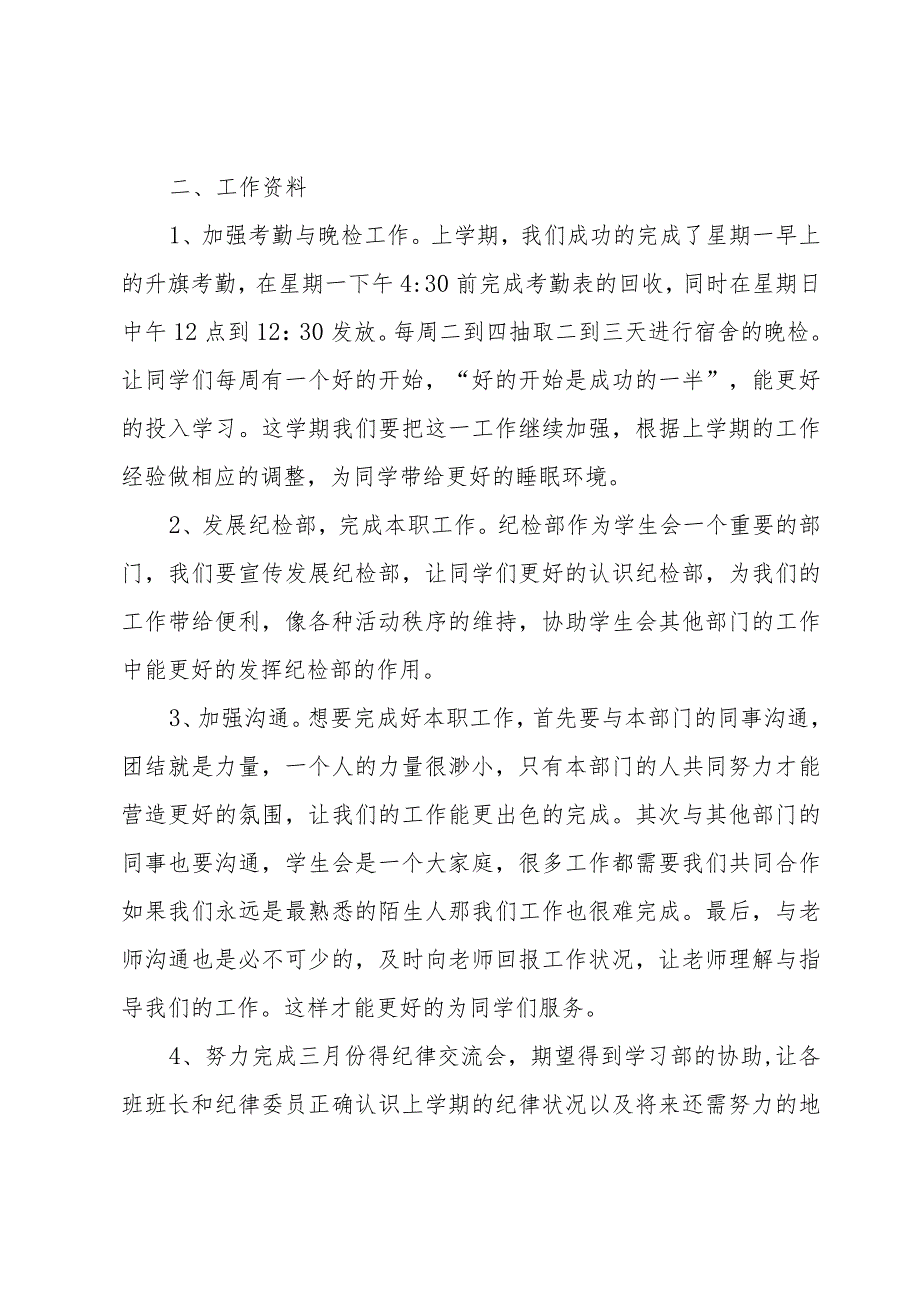 二、工作资料
1、加强考勤与晚检工作。上学期，我们成功的完成了星期一早上
的升旗考勤，在星期一下午4:30前完成考勤表的回收，同时在星期日
中午12点到12：30发放。每周二到四抽取二到三天进行宿舍的晚检。
让同学们每周有一个好的开始，“好的开始是成功的一半”，能更好
的投入学习。这学期我们要把这一工作继续加强，根据上学期的工作
经验做相应的调整，为同学带给更好的睡眠环境。
2、发展纪检部，完成本职工作。纪检部作为学生会一个重要的部
门，我们要宣传发展纪检部，让同学们更好的认识纪检部，为我们的
工作带给便利，像各种活动秩序的维持，协助学生会其他部门的工作
中能更好的发挥纪检部的作用。
3、加强沟通。想要完成好本职工作，首先要与本部门的同事沟通，
团结就是力量，一个人的力量很渺小，只有本部门的人共同努力才能
营造更好的氛围，让我们的工作能更出色的完成。其次与其他部门的
同事也要沟通，学生会是一个大家庭，很多工作都需要我们共同合作
如果我们永远是最熟悉的陌生人那我们工作也很难完成。最后，与老
师沟通也是必不可少的，及时向老师回报工作状况，让老师理解与指
导我们的工作。这样才能更好的为同学们服务。
4、努力完成三月份得纪律交流会，期望得到学习部的协助,让各
班班长和纪律委员正确认识上学期的纪律状况以及将来还需努力的地